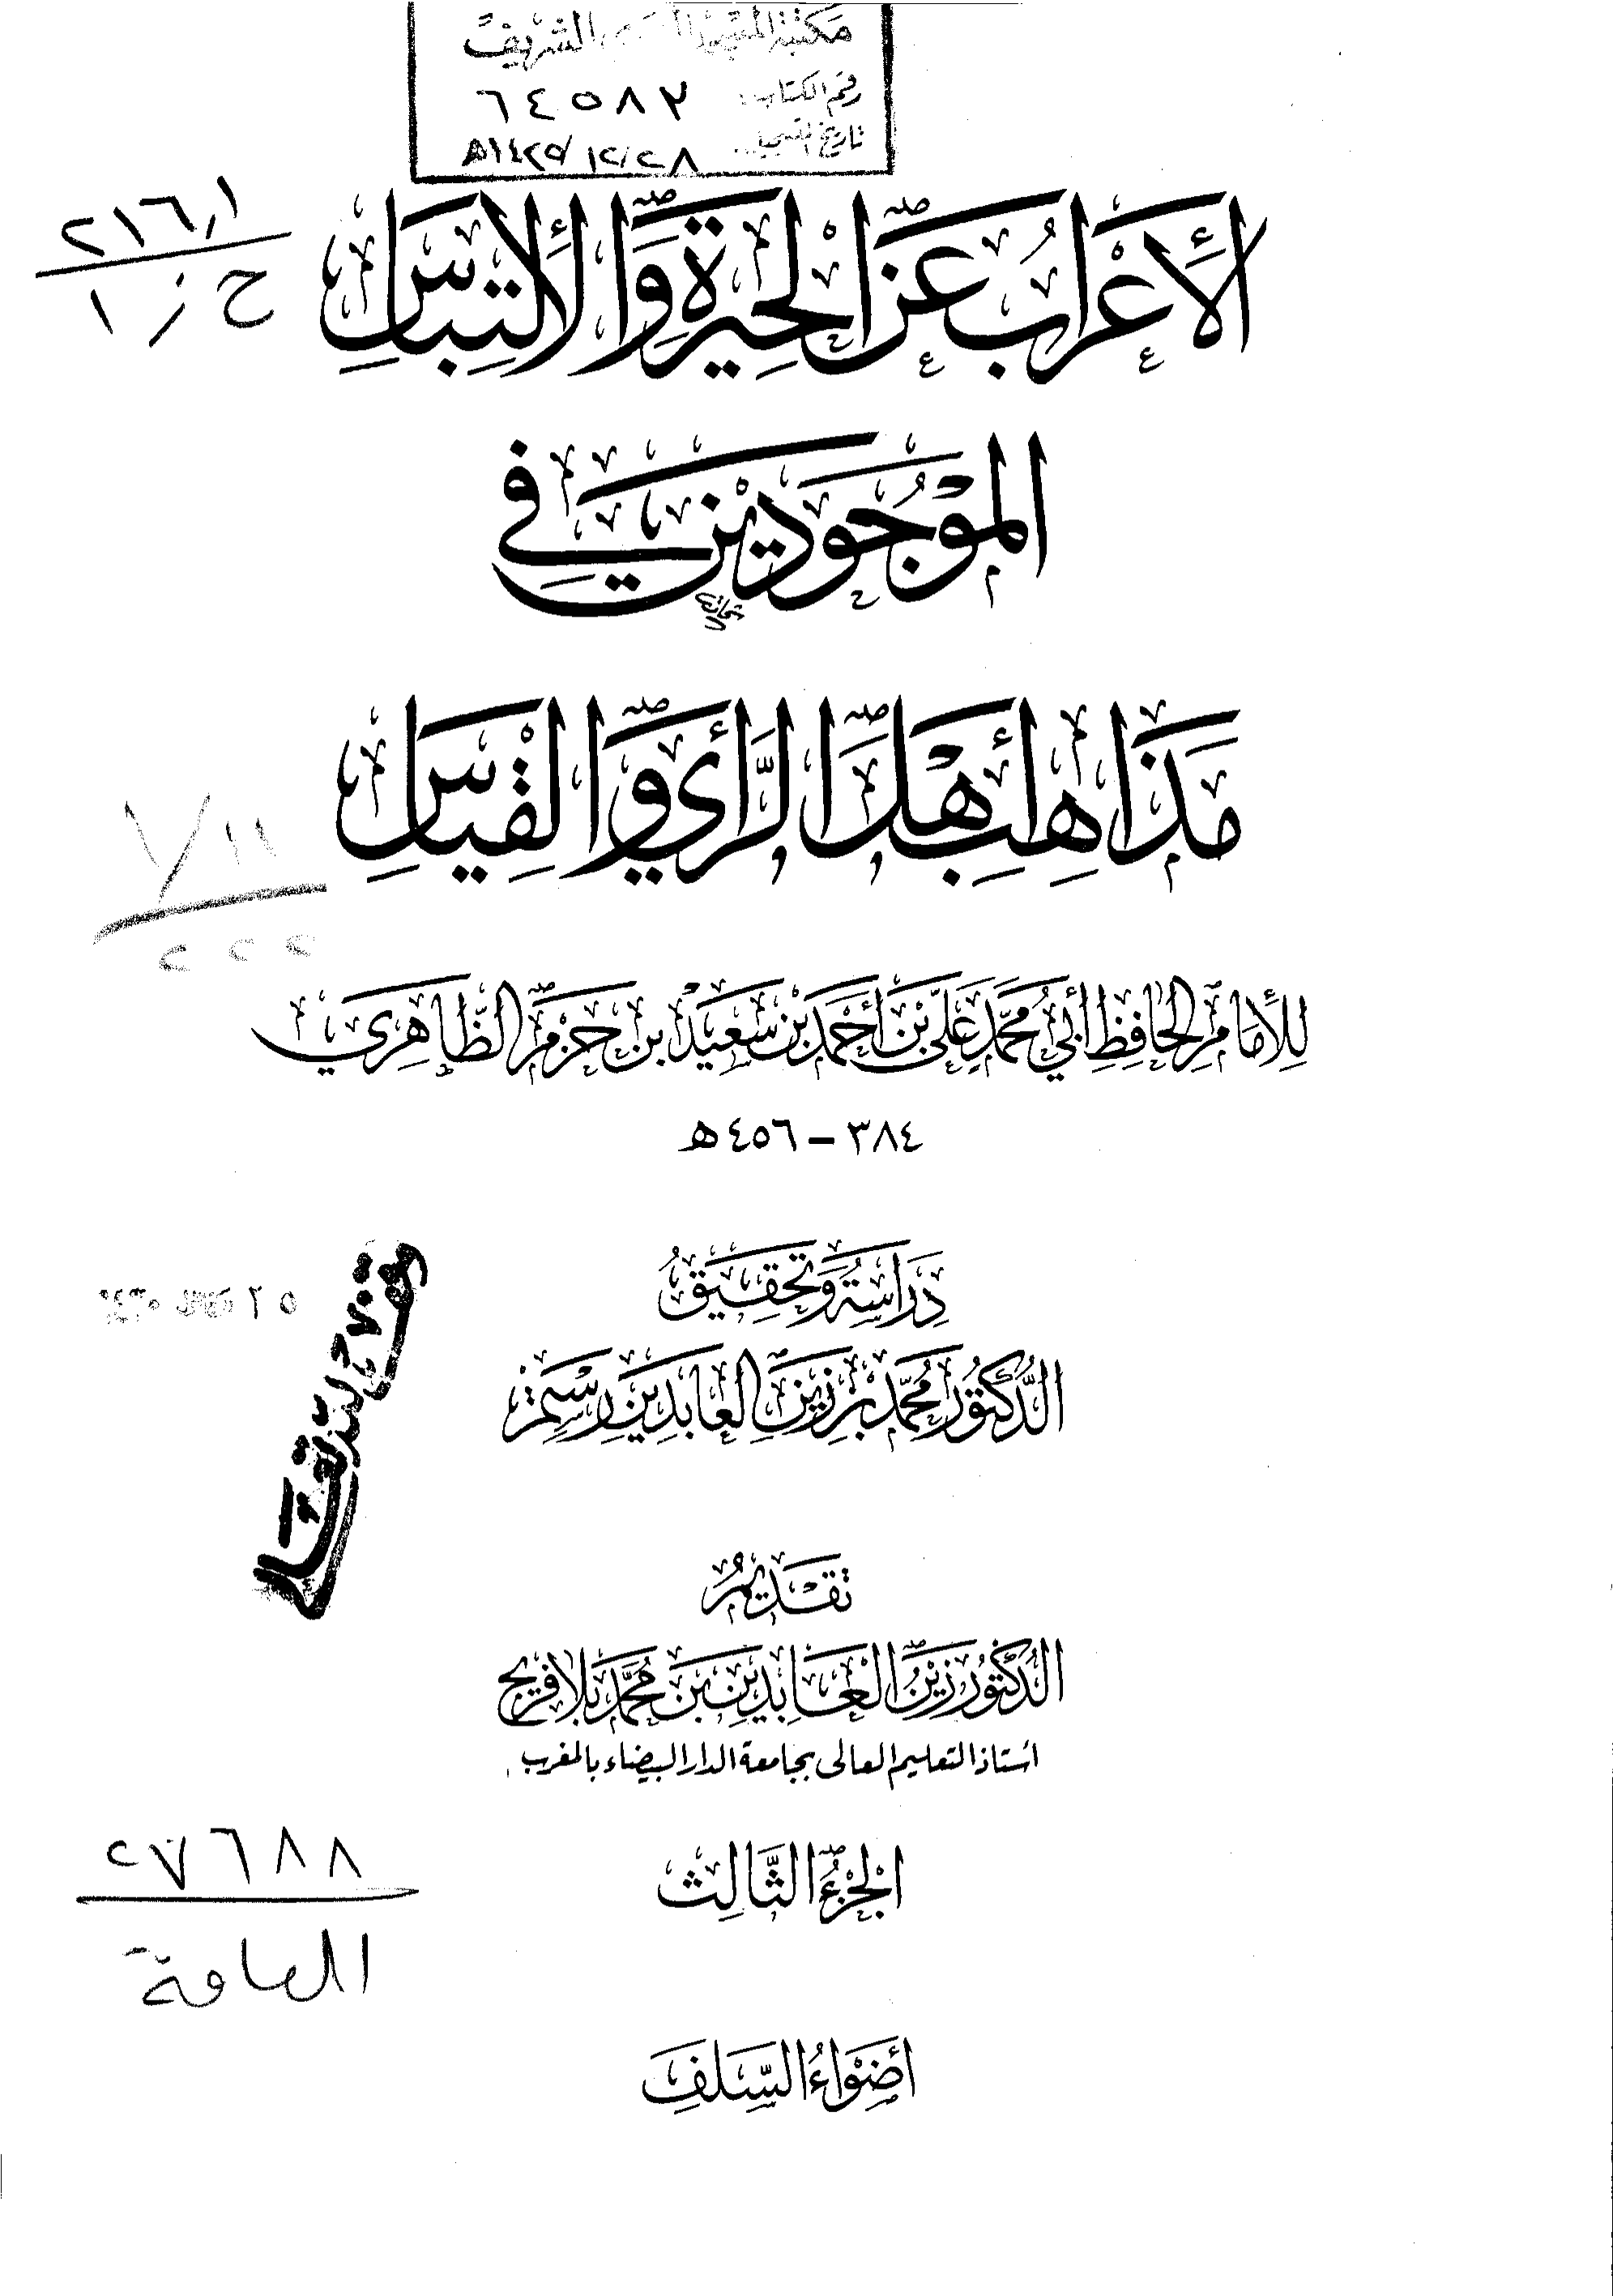 مكتبة المسجد النبوي الشريف
رقم الكتاب: ٦٤٥٨٣
تاريخ التسجيل: ١٤٢٥/١٢/٢٨ه
٢١٦٫١
ح ز ١
الأَعْرَابُ عَنِ الْحِيرَةِ وَالْالْتِبَاسِ
الْمَوْجُودَيْنِ فِي
مَذَاهِبِ أَهْلِ الرَّأْيِ وَالْقِيَاسِ
١١/٧
٢٢٢
لِلْأَمَامِ الْحَافِظِ أَبِي مُحَمَّد عَلِيّ بْن أَحْمَد بْن سَعِيْد ابن حَزْم الظَّاهِرِي
٣٨٤ – ٤٥٦ ه
دِرَاسَةُ وَتَحْقِيقُ
الدُّكْتُورِ مُحَمَّد بْن زَيْن الْعَابِدِين رسْتم
تَقْدِيمُ
الدُّكْتُور زَيْنُ الْعَابِدِين بن مُحَمَّد بلافريج
أستاذ التعليم العالى بجامعة الدار البيضاء بالمغرب
٢٧٦٨٨
العامة
الْجُزْءُ الثَّالِث
أَضْوَاءُ السَّلَفِ